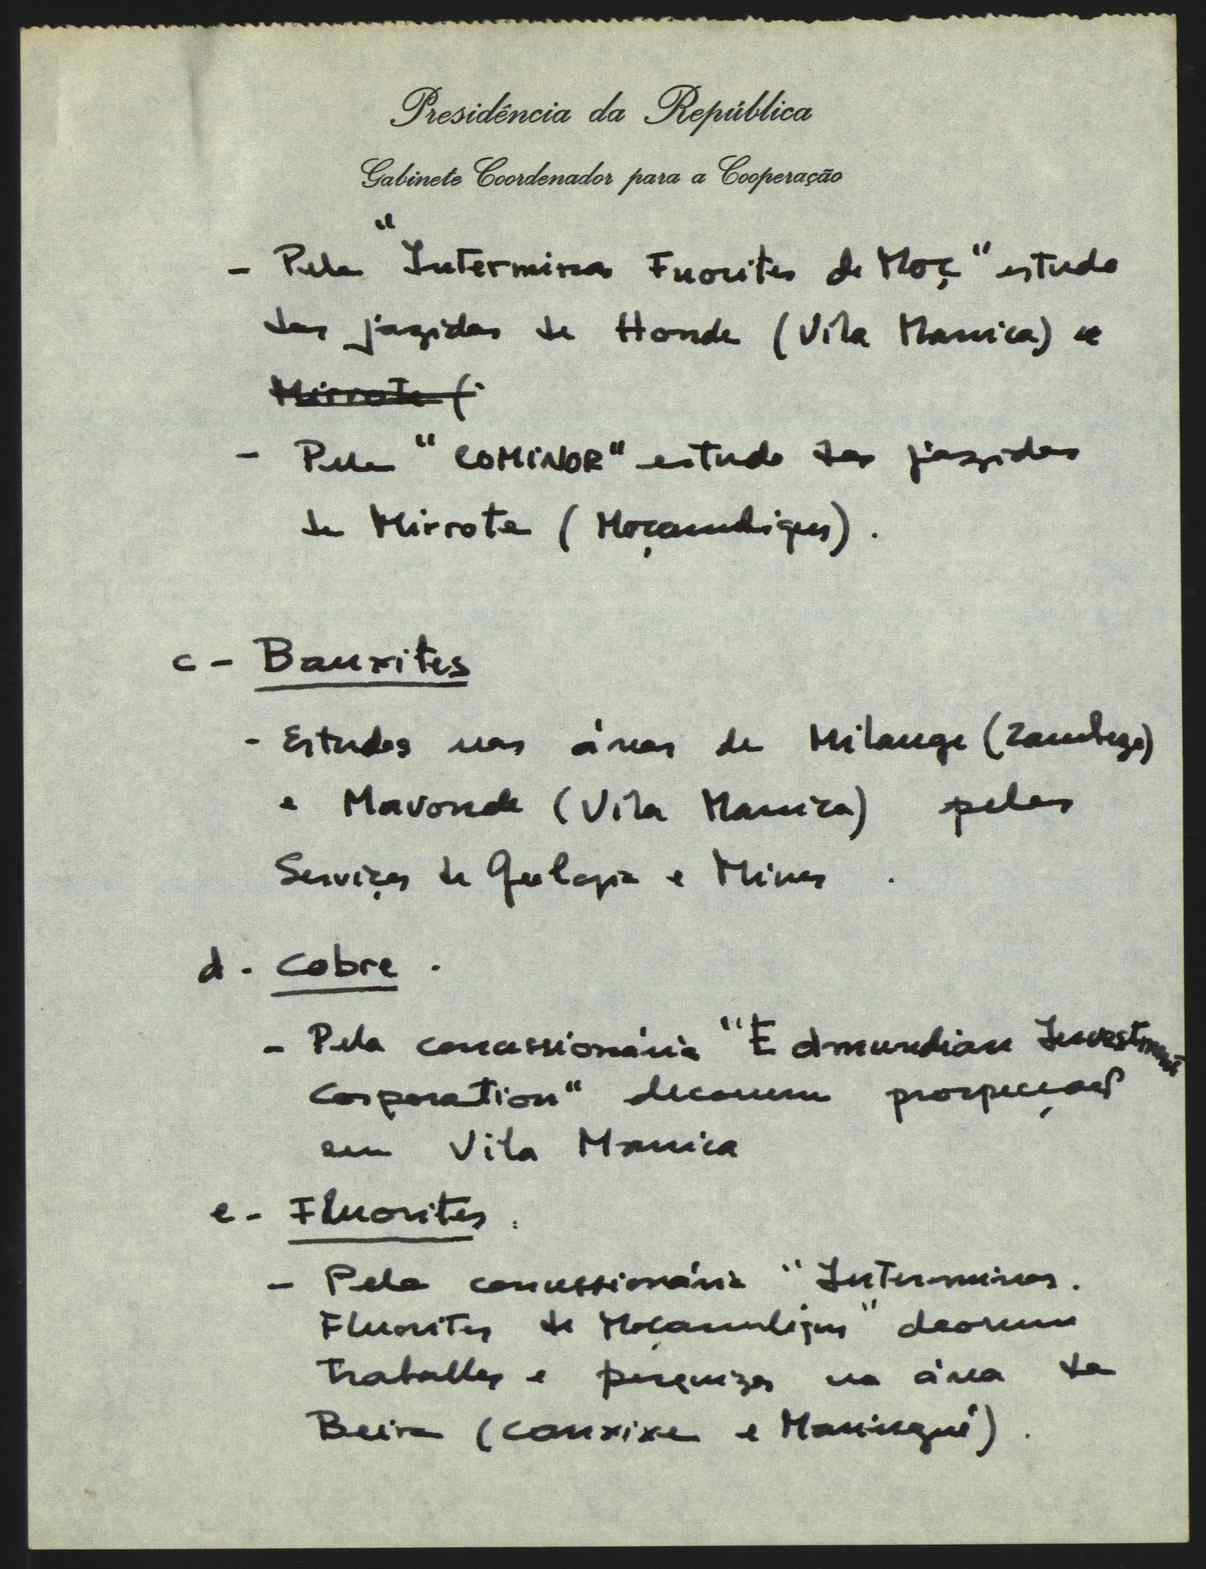 Presidência da República
Gabinete Coordenador para a Cooperação
- Pela "Interminas Fuorites de Moç" estudo
das jazidas de Honde (Vila Manica) e
Mirrote (
- Pela "COMINOR" estudo das jazidas
de Mirrote (Moçambique).
c - Bauxites
- Estudos nas áreas de Milange (Zambeze)
e Mavonde (Vila Manica) pelos
Serviços de Geologia e Minas .
d - Cobre .
- Pela concessionária "Edmundian Investment
Corporation" decorrem prospecções
em Vila Manica
e - Fluorites .
- Pela concessionária "Interminas.
Fluorites de Moçambique" decorrem
trabalhos e pesquizas na área da
Beira (Canxixe e Maringué) .